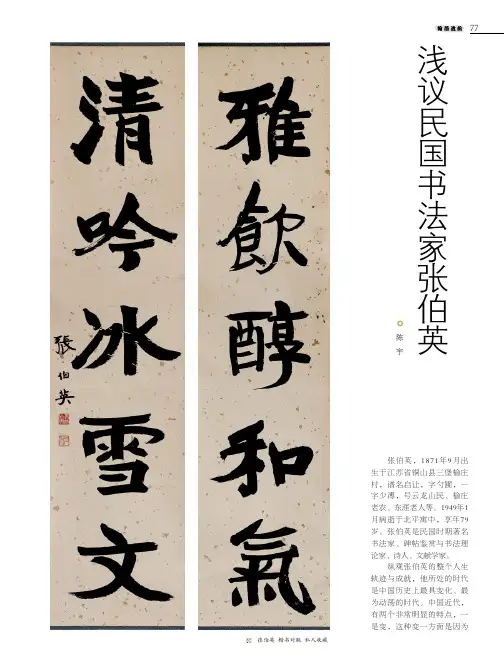 翰墨遗韵 77
浅议民国书法家张伯英
陈宇
雅飲醇和氣
清吟冰雪文
張伯英
张伯英，1871年9月出
生于江苏省铜山县三堡榆庄
村，谱名启让，字勺圃，一
字少溥，号云龙山民、榆庄
老农、东涯老人等。1949年1
月病逝于北平寓中，享年79
岁。张伯英是民国时期著名
书法家、碑帖鉴赏与书法理
论家、诗人、文献学家。
纵观张伯英的整个人生
轨迹与成就，他所处的时代
是中国历史上最具变化、最
为动荡的时代。中国近代，
有两个非常明显的特点，一
是变，这种变一方面是因为
张伯英 楷书对联 私人收藏